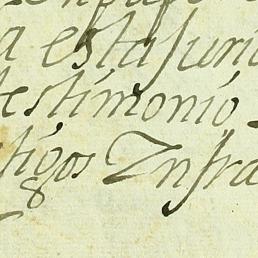 a esta Juri
testimonio
tigos Infra